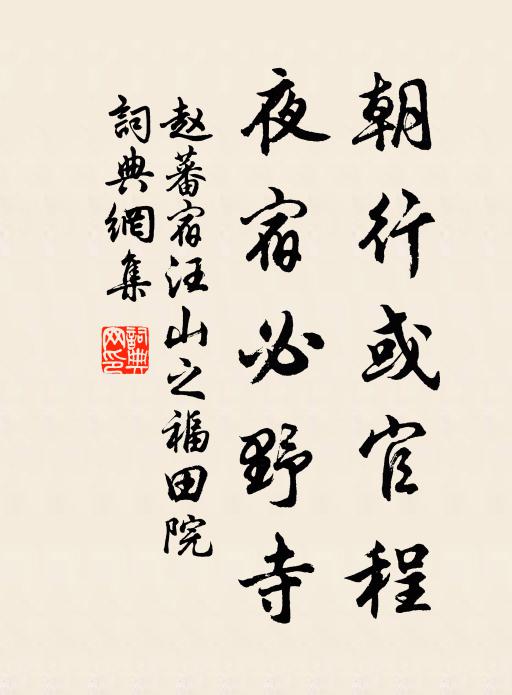 朝行或官程
夜宿必野寺
赵蕃宿汪山之福田院
詞典網集
詞典网印